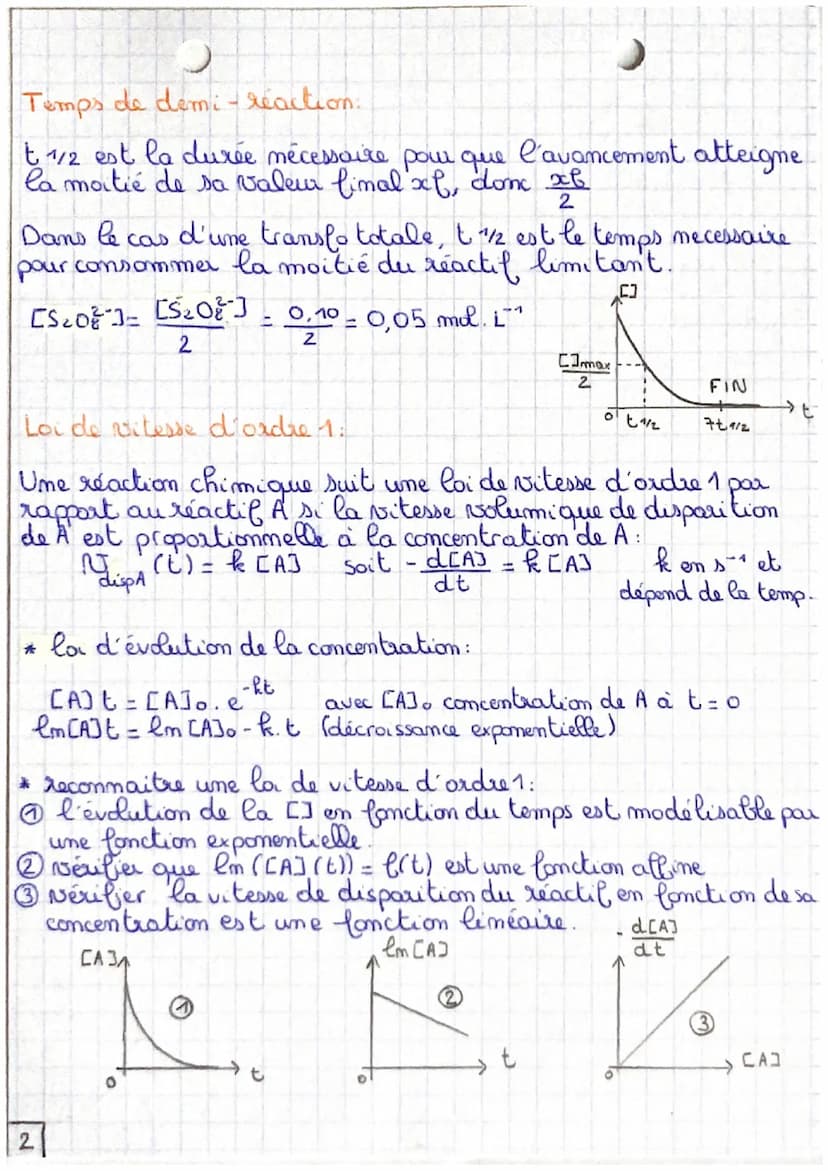 Temps de demi-réaction:
t 1/2 est la durée nécessaire pour que l'avancement atteigne
la moitié de sa valeur final xf, donc xf/2
Dans le cas d'une transfo totale, t 1/2 est le temps necessaire
pour consommer la moitié du réactif limitant.
[S₂O₈²⁻] = [S₂O₈²⁻]/2 = 0,10/2 = 0,05 mol.L⁻¹
[]
[]max/2
FIN
0 t 1/2 7t 1/2 t
Loi de vitesse d'ordre 1:
Une réaction chimique suit une loi de vitesse d'ordre 1 par
rapport au réactif A si la vitesse volumique de disparition
de A est proportionnelle à la concentration de A:
v dispA (t) = k [A] soit - d[A]/dt = k [A] k en s⁻¹ et
dépend de la temp.
* loi d'évolution de la concentration:
[A]t = [A]₀. e^-kt avec [A]₀ concentration de A à t=0
ln[A]t = ln[A]₀ - k.t (décroissance exponentielle)
* reconnaitre une loi de vitesse d'ordre 1:
① l'évolution de la [] en fonction du temps est modélisable par
une fonction exponentielle.
② vérifier que ln([A](t)) = f(t) est une fonction affine
③ vérifier la vitesse de disparition du réactif en fonction de sa
concentration est une fonction linéaire.
[A] ① 0 t
ln[A] ② 0 t
- d[A]/dt ③ 0 [A]
2